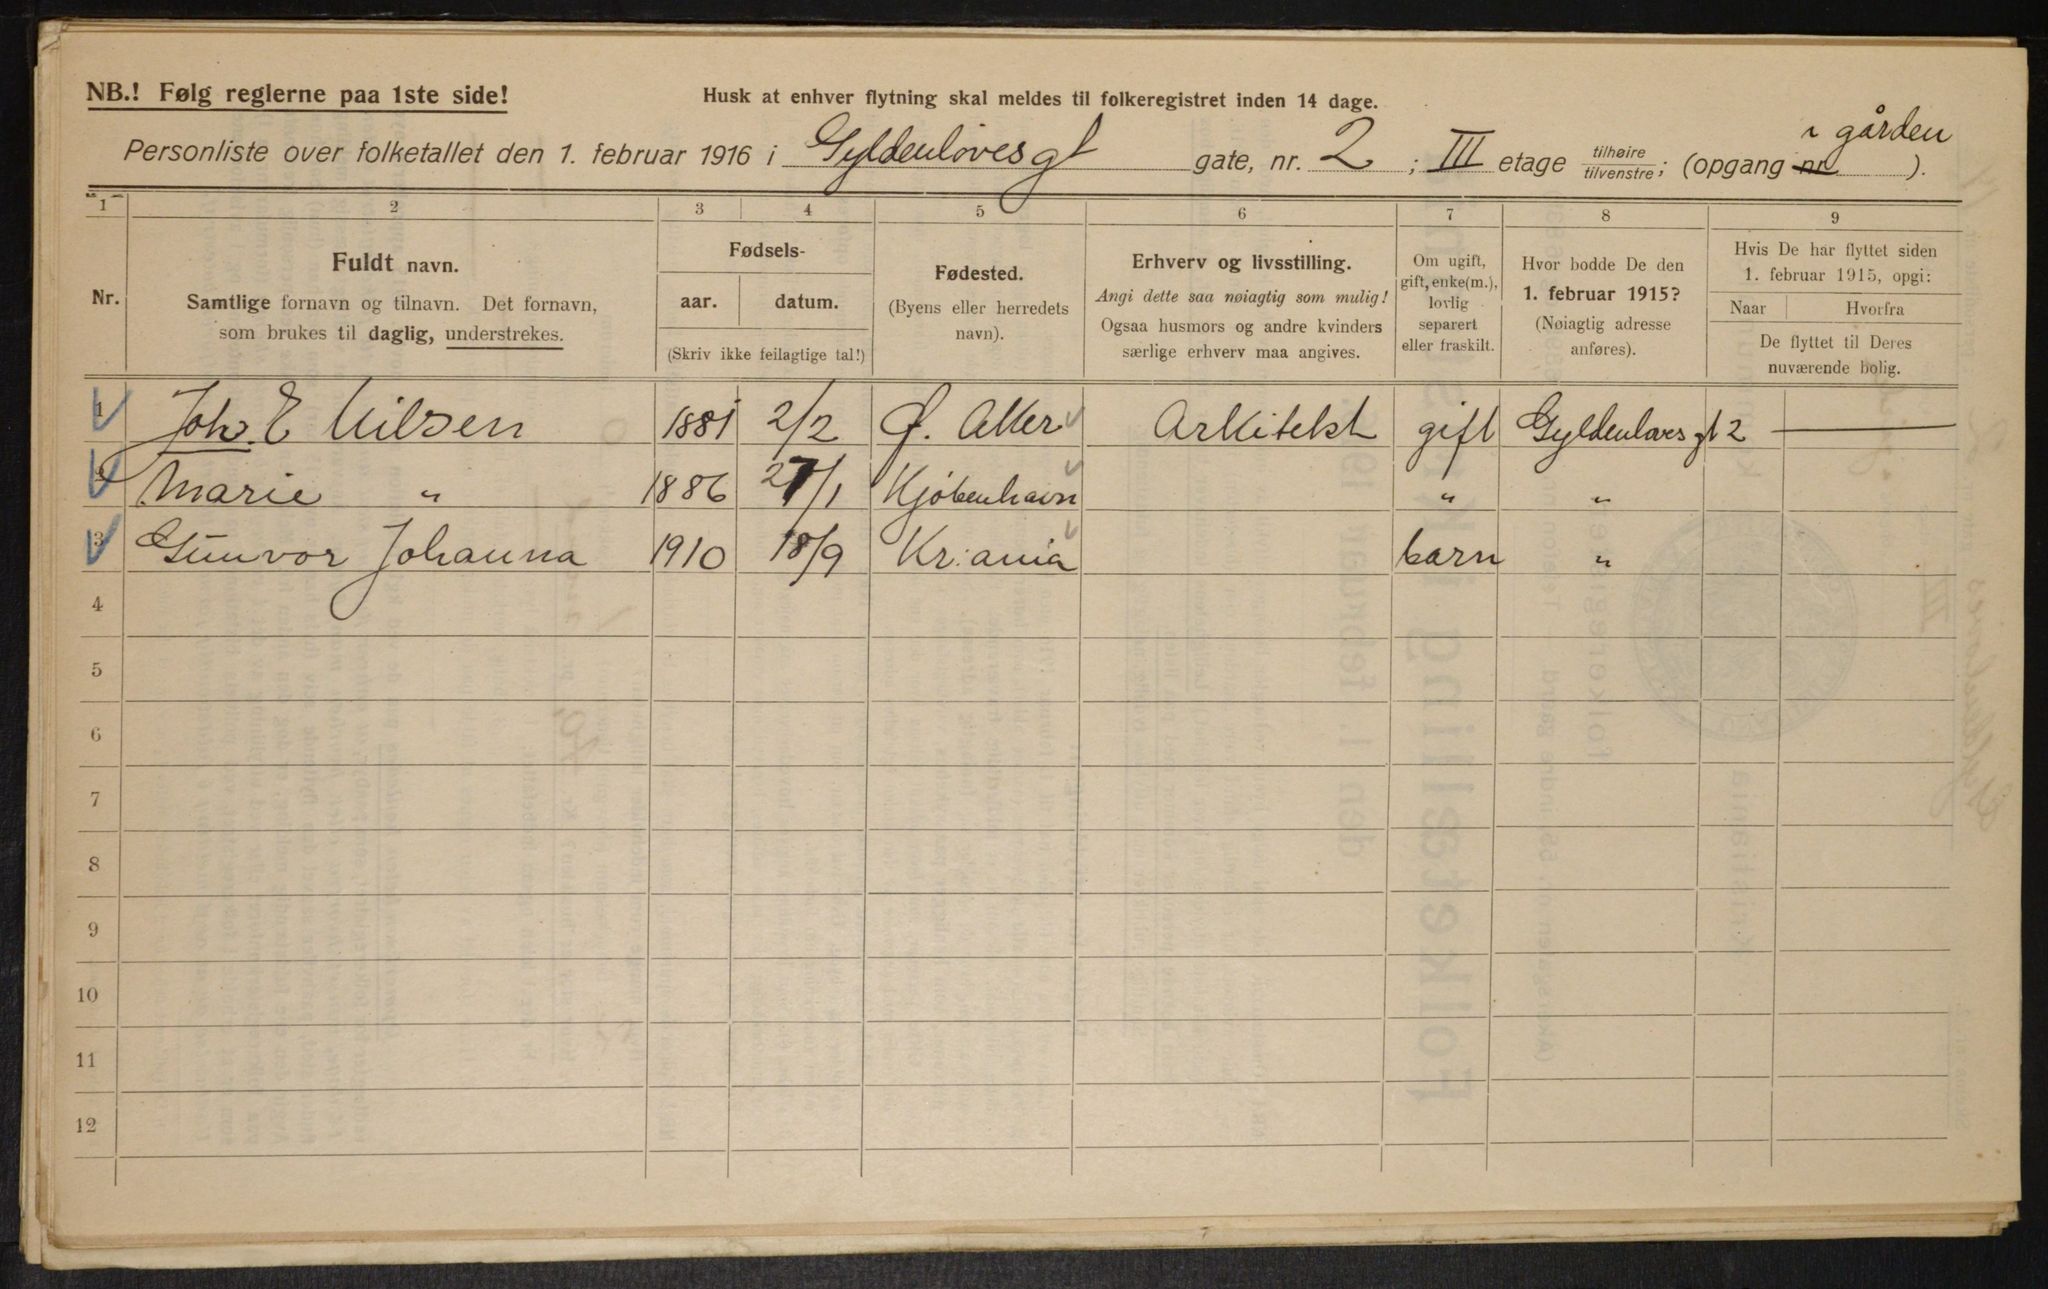 NB.! Følg reglerne paa 1ste side!
Husk at enhver flytning skal meldes til folkeregistret inden 14 dage.
i gården
Personliste over folketallet den 1. februar 1916 i Gyldenløves gt gate, nr. 2 ; III etage tilhøire/tilvenstre; (opgang nr. ).
1 2 3 4 5 6 7 8 9
Nr.
Fuldt navn.
Samtlige fornavn og tilnavn. Det fornavn,
som brukes til daglig, understrekes.
Fødsels-
aar. datum.
(Skriv ikke feilagtige tal!)
Fødested.
(Byens eller herredets
navn).
Erhverv og livsstilling.
Angi dette saa nøiagtig som mulig!
Ogsaa husmors og andre kvinders
særlige erhverv maa angives.
Om ugift,
gift, enke(m.),
lovlig
separert
eller fraskilt.
Hvor bodde De den
1. februar 1915?
(Nøiagtig adresse
anføres).
Hvis De har flyttet siden
1. februar 1915, opgi:
Naar Hvorfra
De flyttet til Deres
nuværende bolig.
1 Joh. E Nilsen 1881 2/2 Ø. Aker Arkitekt gift Gyldenløves gt 2 —
2 Marie " 1886 27/1 Kjøbenhavn " "
3 Gunvor Johanna 1910 18/9 Kr.ania barn "
4
5
6
7
8
9
10
11
12